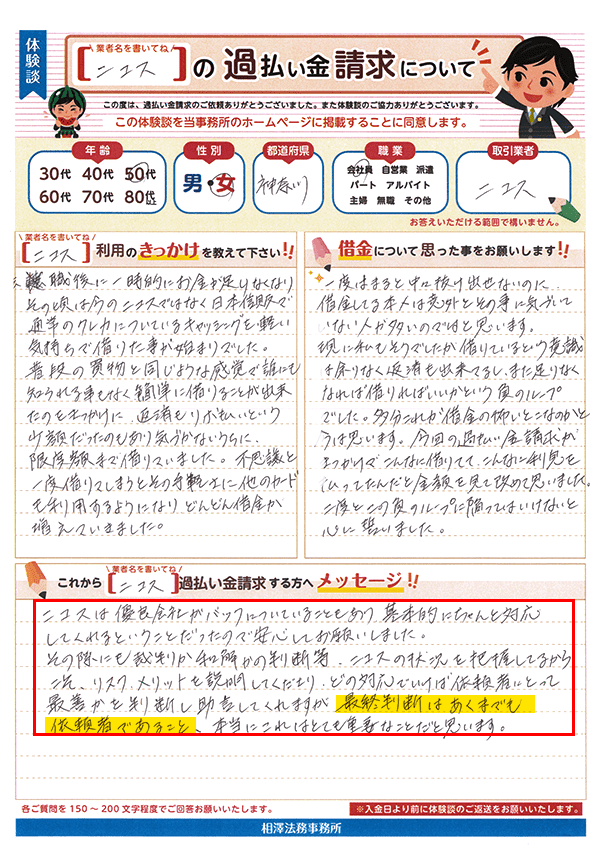 体験談
業者名を書いてね
[ニコス]の過払い金請求について
この度は、過払い金請求のご依頼ありがとうございました。また体験談のご協力ありがとうございます。
この体験談を当事務所のホームページに掲載することに同意します。
年齢
30代 40代 50代
60代 70代 80代以上
性別
男・女
都道府県
神奈川
職業
会社員 自営業 派遣
パート アルバイト
主婦 無職 その他
取引業者
ニコス
お答えいただける範囲で構いません。
業者名を書いてね
[ニコス]利用のきっかけを教えて下さい!!
職後に一時的にお金が足りなくなり
その頃は今のニコスではなく日本信販で
通常のクレカについているキャッシングを軽い
気持ちで借りた事が始まりでした。
普段の買物と同じような感覚で誰にも
知られる事もなく簡単に借りることが出来
たのもきっかけに、返済もリボ払いという
少額だったのもあり気づかないうちに、
限度額まで借りていました。不思議と
一度借りてしまうとその手軽さに他のカード
も利用するようになり どんどん借金が
増えていきました。
借金について思った事をお願いします!!
一度はまると中々抜け出せないのに
借金してる本人は意外とその事に気づいて
いない人が多いのではと思います。
現に私もそうでしたが借りているという意識
は余りなく返済も出来てるし、また足りなく
なれば借りればいいかという負のループ
でした。多分これが借金の怖いとこなのかと
今は思います。今回の過払い金請求が
きっかけでこんなに借りてて、こんなに利息を
払ってたんだと金額を見て改めて思いました。
二度とこの負のループに陥ってはいけないと
心に誓いました。
業者名を書いてね
これから[ニコス]過払い金請求する方へメッセージ!!
ニコスは優良会社がバックについていることもあり、基本的にちゃんと対応
してくれるということだったので安心してお願いしました。
その際にも裁判か和解かの判断等、ニコスの状況を把握してるから
こそ、リスク、メリットを説明してくださり、どの対応でいけば依頼者にとって
最善かを判断し助言してくれますが 最終判断はあくまでも
依頼者であること、本当にこれはとても重要なことだと思います。
各ご質問を150～200文字程度でご回答お願いいたします。
※入金日より前に体験談のご返送をお願いいたします。
相澤法務事務所